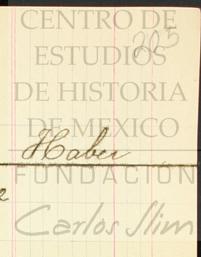 CENTRO DE
205
ESTUDIOS
DE HISTORIA
DE MEXICO
Haber
FUNDACIÓN
Carlos Slim